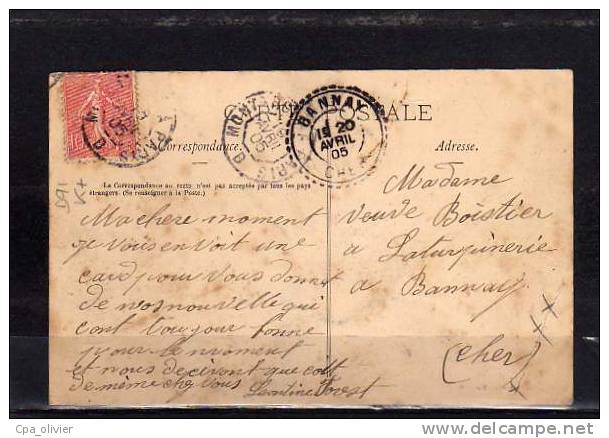 CARTE POSTALE
Correspondance.
Adresse.
La Correspondance au recto n'est pas acceptée par tous les pays
étrangers. (Se renseigner à la Poste.)
BANNAY
15 20
AVRIL
05
CHER
Ma chere moment
je vous en voit une
card pour vous donnet
de nos nouvelle qui
cont toujour bonne
pour le moment
et nous decivont que
de même chez vous Leontine Forest
Madame
veuve Boistier
a Laturpinerie
a Bannay
(Cher)
Cpa_olivier
delcampe.net